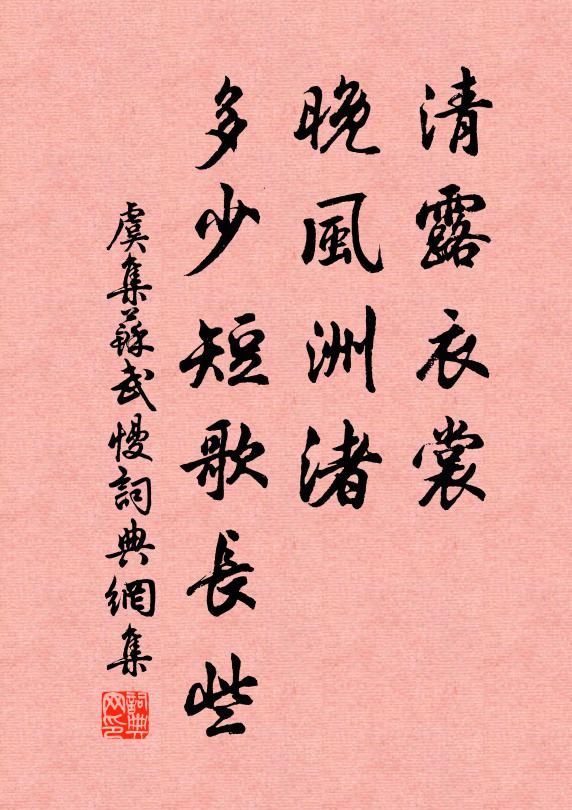 清露衣裳
晚風洲渚
多少短歌長些
虞集蘇武慢詞典網集
詞典网印